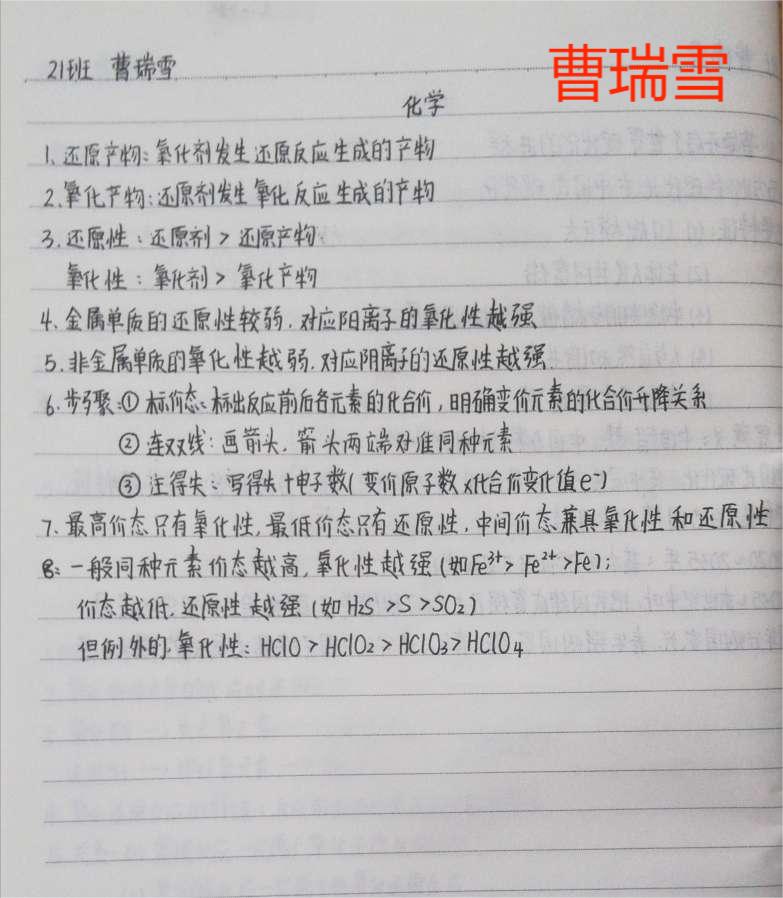 21班 曹瑞雪
曹瑞雪
化学
1、还原产物：氧化剂发生还原反应生成的产物
2、氧化产物：还原剂发生氧化反应生成的产物
3、还原性：还原剂>还原产物.
氧化性：氧化剂>氧化产物
4、金属单质的还原性较弱，对应阳离子的氧化性越强
5、非金属单质的氧化性越弱，对应阴离子的还原性越强
6、步骤：①标价态：标出反应前后各元素的化合价，明确变价元素的化合价升降关系
②连双线：画箭头，箭头两端对准同种元素
③注得失：写得失+电子数(变价原子数×化合价变化值e⁻)
7、最高价态只有氧化性，最低价态只有还原性，中间价态兼具氧化性和还原性
8：一般同种元素价态越高，氧化性越强(如Fe³⁺>Fe²⁺>Fe)；
价态越低，还原性越强(如H₂S>S>SO₂)
但例外的，氧化性：HClO>HClO₂>HClO₃>HClO₄